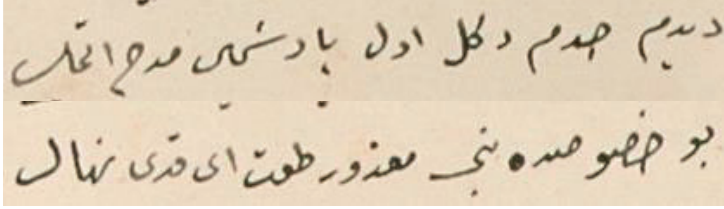 ديدم حدم دكل اول پادشاهى مدح اتمك
بو خصوصده بنى معذور طوت اى قدى نهال